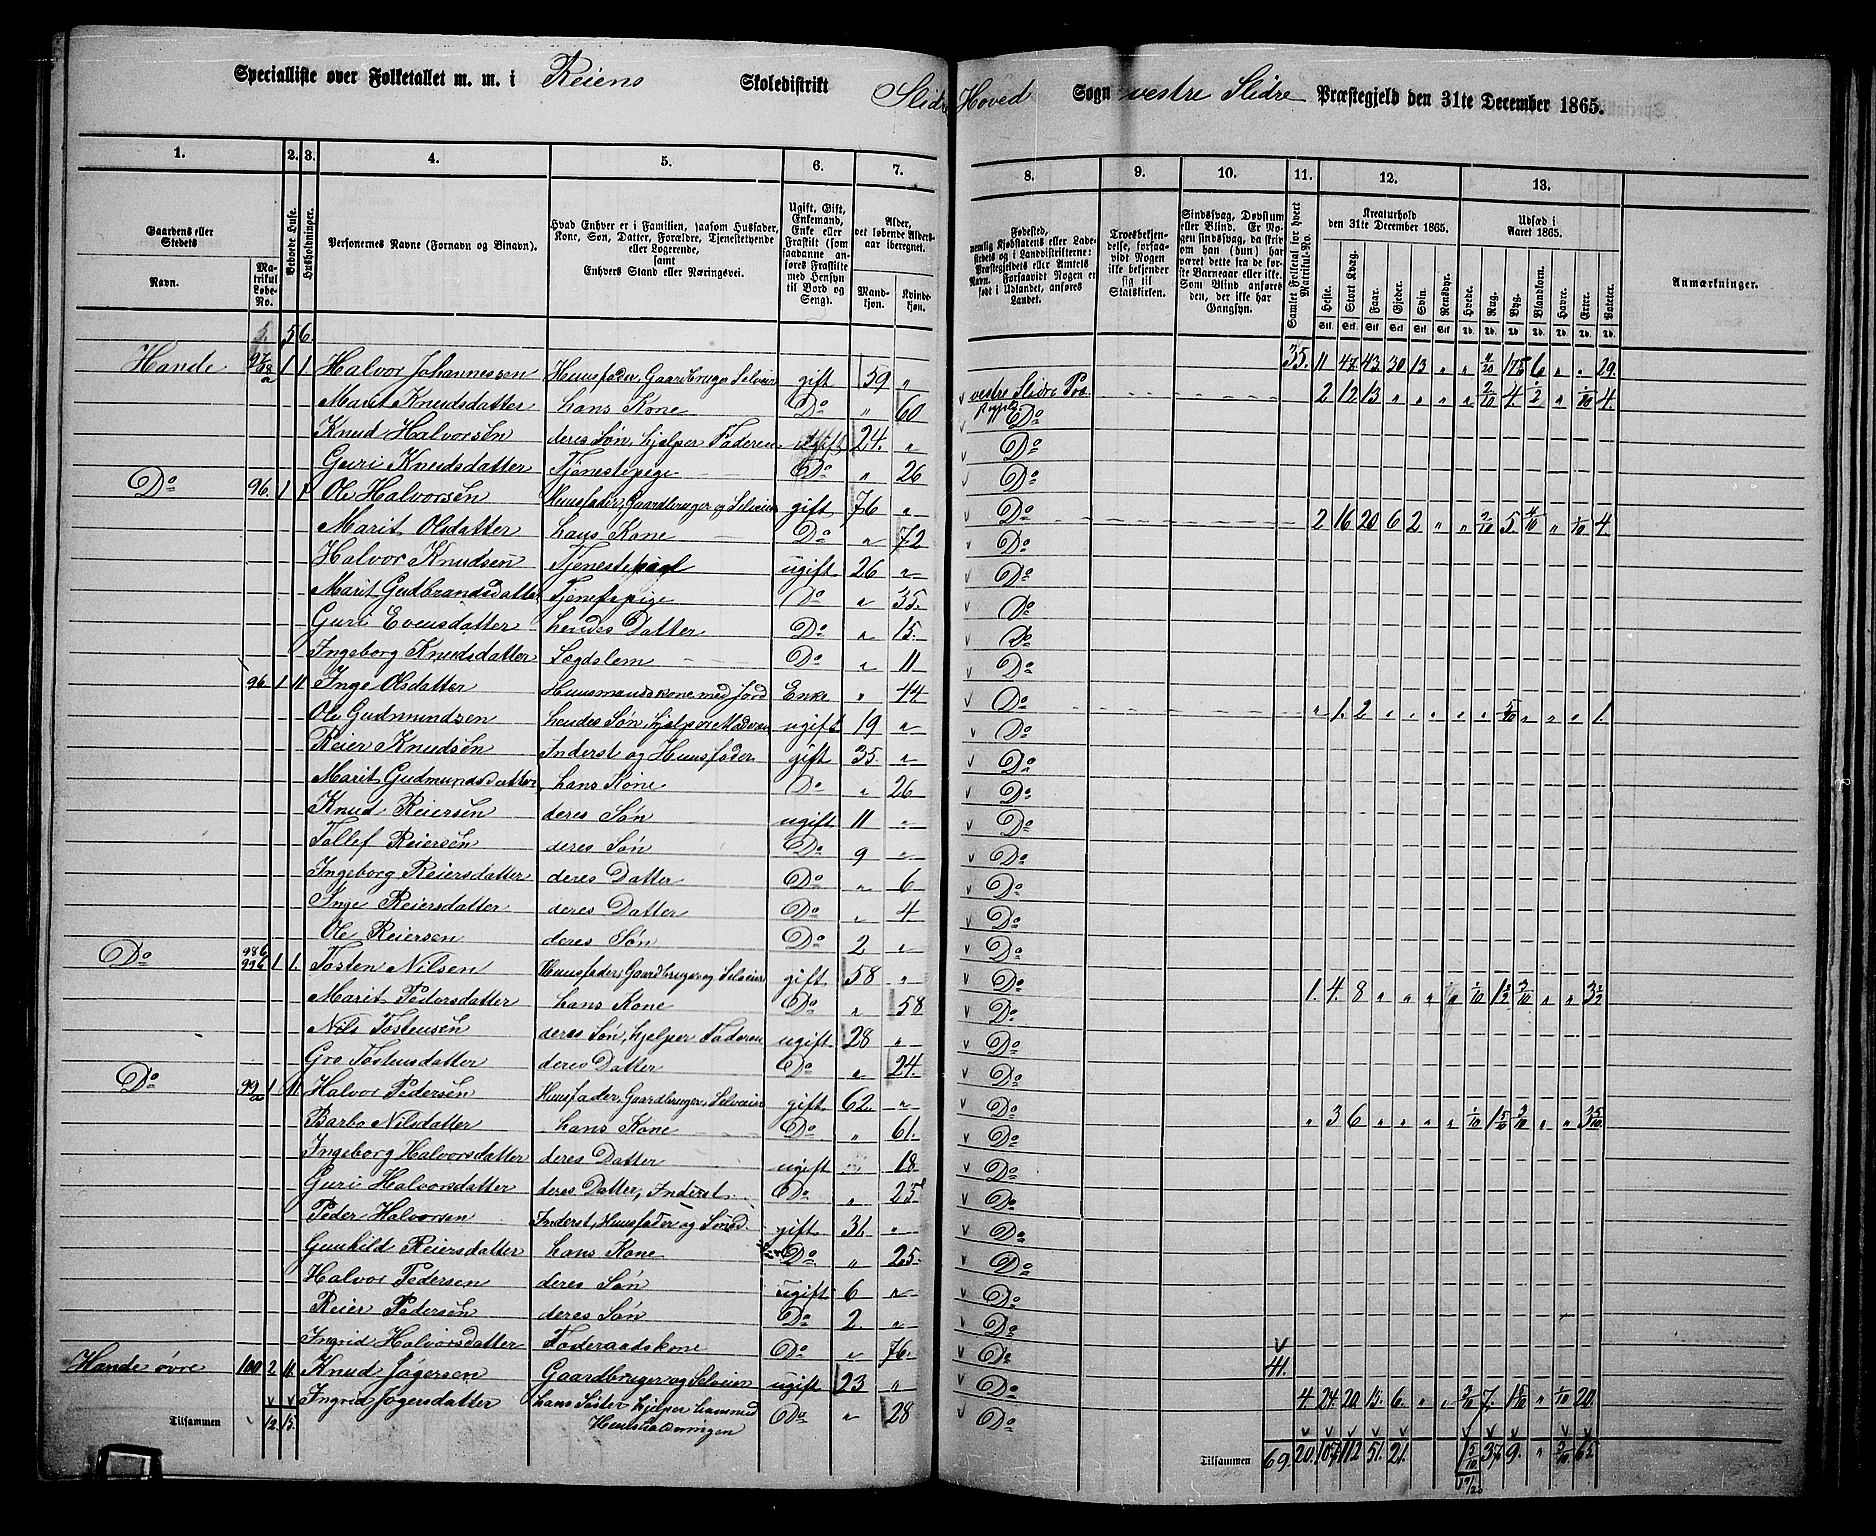 Specialliste over Folketallet m. m. i Reiens Skoledistrikt Slidre Hoved Sogn vestre Slidre Præstegjeld den 31te December 1865.
1. 2. 3. 4. 5. 6. 7. 8. 9. 10. 11. 12. 13.
Gaardens eller Stedets Navn. Matrikul Løbe-No. Beboede Huse. Husholdninger. Personernes Navne (Fornavn og Binavn). Hvad Enhver er i Familien, saasom Husfader, Kone, Søn, Datter, Forældre, Tjenestetyende eller Logerende, samt Enhvers Stand eller Næringsvei. Ugift, Gift, Enkemand, Enke eller Fraskilt (som saadanne anføres Fraskilte med Hensyn til Bord og Seng). Alder, det løbende Aldersaar iberegnet. Mandkjøn. Kvindekjøn. Fødested, nemlig Kjøbstadens eller Ladestedets og i Landdistrikterne: Præstegjeldets eller Amtets Navn. Forsaavidt Nogen er født i Udlandet, anføres Landet. Troesbekjendelse, forsaavidt Nogen ikke bekjender sig til Statskirken. Sindssvag, Døvstum eller Blind. Er Nogen sindssvag, da skrives om han (hun) har været dette fra de første Barneaar eller ikke. Som Blind anføres den, der ikke har Gangsyn. Samlet Folketal for hvert Matrikul-No. Kreaturhold den 31te December 1865. Udsæd i Aaret 1865. Anmærkninger.
Heste. Stort Kvæg. Faar. Gjeder. Svin. Rensdyr. Hvede. Rug. Byg. Blandkorn. Havre. Erter. Poteter.
5 6.
35. 11 47. 43. 30 13 " " 6 " " 29.
Hande 1 1 Halvor Johannessen Huusfader, Gaardbruger Selveier gift 59 " vestre Slidre Præ 2 12 13 " " " " 2/10 4. 1/2 " 1/10 4.
Marit Knudsdatter hans Kone Do " 60 Do
Knud Halvorsen deres Søn, hjelper Faderen ugift 24. " Do
Guri Knudsdatter Tjenestepige Do " 26 Do
Do 96. 1 1 Ole Halvorsen Huusfader, Gaardbruger og Selveier gift 76 " Do 2 16 20 6 2 " " 2/10 5. 4/10 " 1/10 4.
Marit Olsdatter hans Kone Do " 72 Do
Halvor Knudsen Tjenestekarl ugift 26 " Do
Marit Gudbrandsdatter Tjenestepige Do " 35. Do
Guri Evensdatter hendes Datter Do " 15. Do
Ingeborg Knudsdatter Lægdslem Do " 11 Do
96 1 11 Inge Olsdatter Huusmandskone med Jord Enke " 44. Do " 1. 2 " " " " " 5/10 " " " 1.
Ole Gudmundsen hendes Søn, hjelper Moderen ugift 19 " Do
Reier Knudsen Inderst og Huusfader gift 35. " Do
Marit Gudmundsdatter hans Kone Do " 26 Do
Knud Reiersen deres Søn ugift 11 " Do
Tollef Reiersen deres Søn Do 9 " Do
Ingeborg Reiersdatter deres Datter Do " 6 Do
Inge Reiersdatter deres Datter Do " 4 Do
Ole Reiersen deres Søn Do 2 " Do
Do 1 1. Tosten Nilsen Huusfader Gaardbruger og Selveier gift 58 " Do 1. 4. 8 " " "
Marit Pedersdatter hans Kone Do " 58 Do
Nils Tostensen deres Søn, hjelper Faderen ugift 28 " Do
Gro Tostensdatter deres Datter Do " 24. Do
Do 1 11 Halvor Pedersen Huusfader, Gaardbruger, Selveier gift 62. " Do " 3 6 " " " "
Barbo Nilsdatter hans Kone Do " 61. Do
Ingeborg Halvorsdatter deres Datter ugift " 18 Do
Guri Halvorsdatter deres Datter, Inderst Do " 25 Do
Peder Halvorsen Inderst, Huusfader og Smed gift 31. " Do
Gunhild Reiersdatter hans Kone Do " 25. Do
Halvor Pedersen deres Søn ugift 6 " Do
Reier Pedersen deres Søn Do 2. " Do
Ingrid Halvorsdatter Føderaadskone Do " 76. Do
Hande øvre 100 2 11 Knud Jøgersen Gaardbruger og Selveier ugift 23 " Do 41. 4. 24. 20. 15. 6. " " 2/10 7. " 1/10 20.
Ingrid Jøgersdatter hans Søster, hjelper ham med Huusholdningen Do " 28 Do
Tilsammen 12 15. Tilsammen 69. 20. 107. 112 51. 21. 37. 9. " 65.